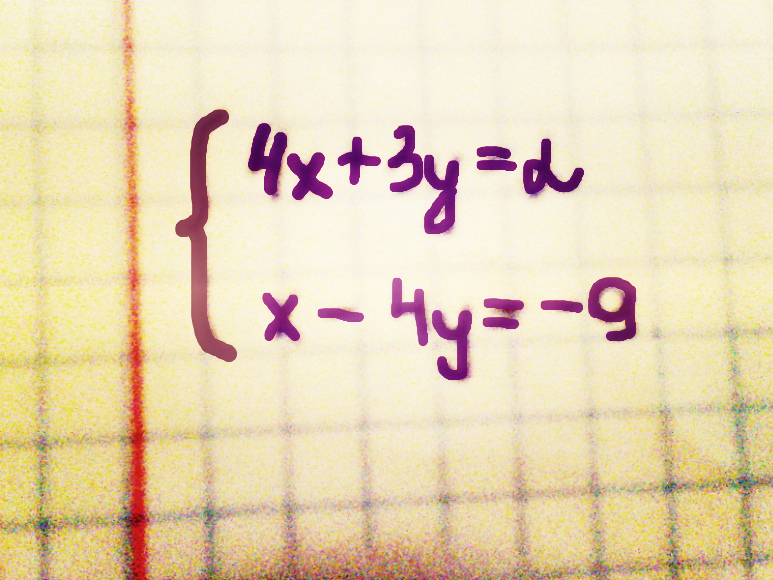 4x+3y=2
x-4y=-9